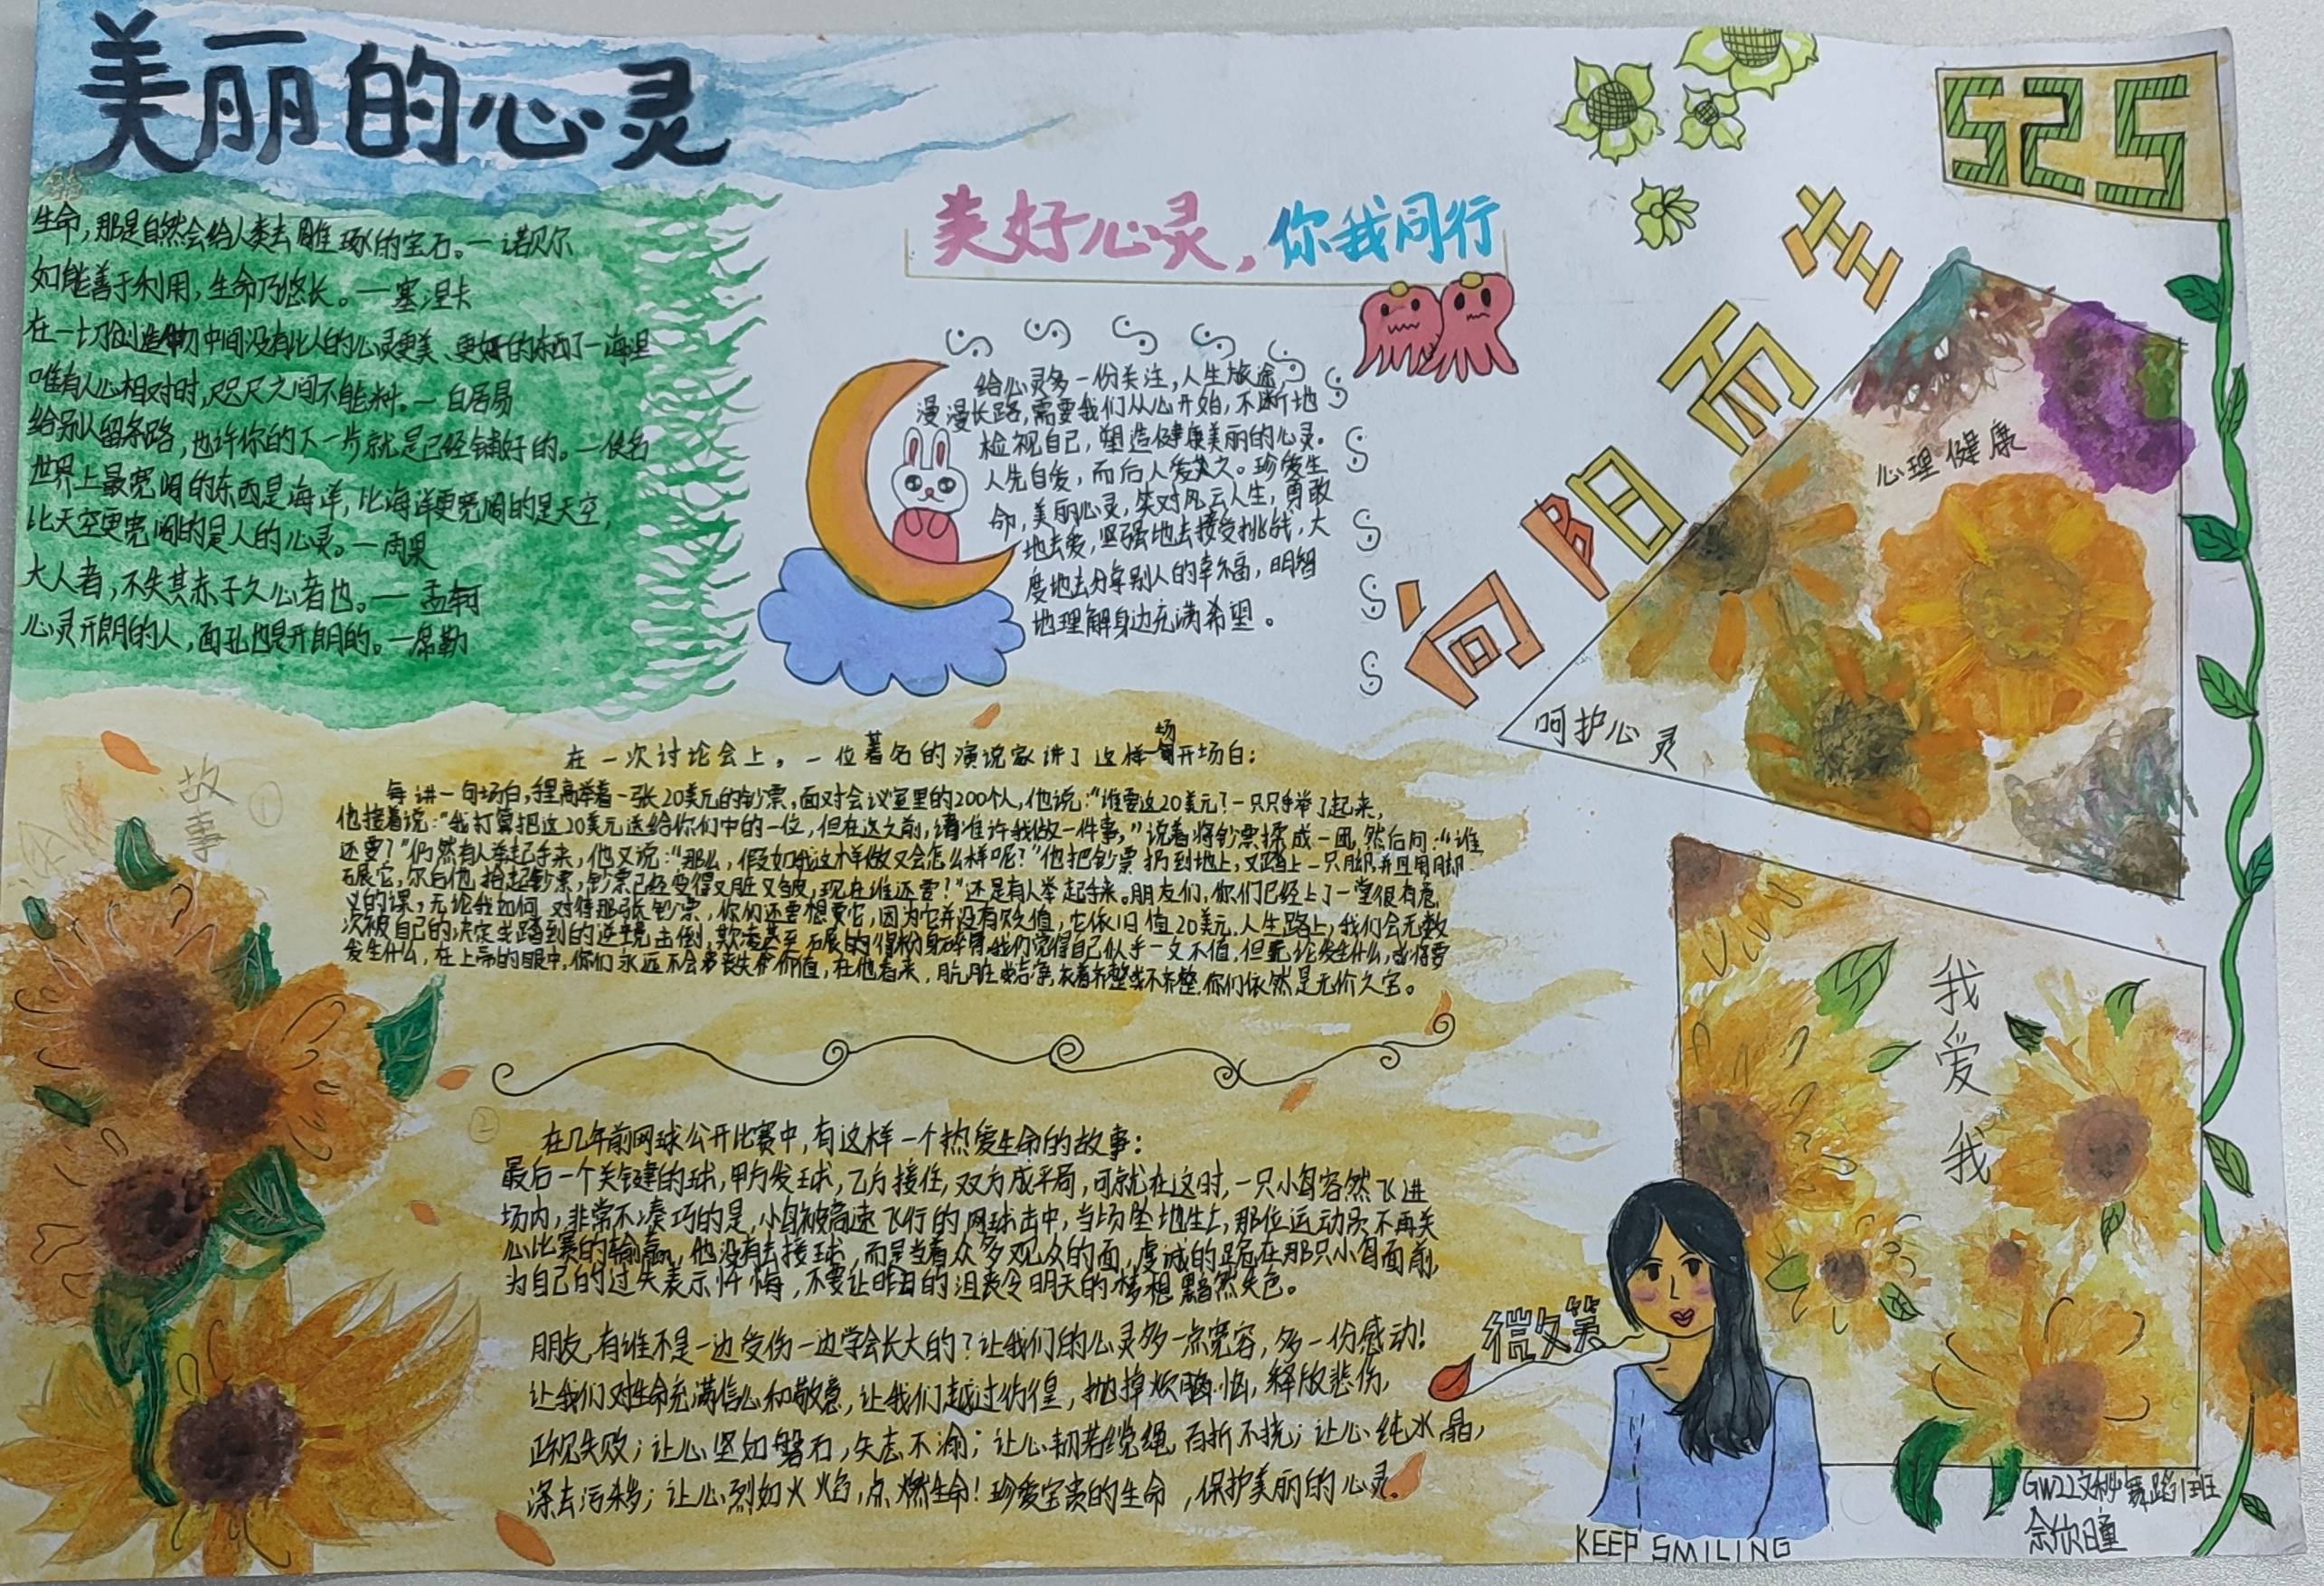 美丽的心灵
生命，那是自然会给人类去雕琢的宝石。—诺贝尔
如能善于利用，生命乃悠长。—塞涅卡
在一切创造物中间没有比人的心灵更美、更好的东西了—海涅
唯有人心相对时，咫尺之间不能料。—白居易
给别人留条路，也许你的下一片就是已经铺好的。—佚名
世界上最宽阔的东西是海洋，比海洋更宽阔的是天空，
比天空更宽阔的是人的心灵。—雨果
大人者，不失其赤子之心者也。—孟轲
心灵开朗的人，面孔也是开朗的。—席勒
美好心灵，你我同行
给心灵多一份关注，人生旅途，
漫漫长路，需要我们从心开始，不断地
检视自己，塑造健康美丽的心灵。
人先自爱，而后人爱其之。珍爱生
命，美丽心灵，笑对风云人生，勇敢
地去爱，坚强地去接受挑战，大
度地去分享别人的幸福，明智
地理解身边充满希望。
525
向阳而生
心理健康
呵护心灵
故事
①
在一次讨论会上，一位著名的演说家讲了这样一句开场白：
每讲一句场白，手里高举着一张20美元的钞票，面对会议室里的200个人，他说：“谁要这20美元？一只只手举了起来，
他接着说：“我打算把这20美元送给你们中的一位，但在这之前，请准许我做一件事，”说着将钞票揉成一团，然后问：“谁
还要？”仍然有人举起手来，他又说：“那么，假如我这样做又会怎么样呢？”他把钞票扔到地上，又踏上一只脚，并且用脚
碾它，尔后他拾起钞票，钞票已经变得又脏又皱，现在谁还要？”还是有人举起手来。朋友们，你们已经上了一堂很有意
义的课，无论我如何对待那张钞票，你们还要想要它，因为它并没有贬值，它依旧值20美元，人生路上，我们会无数
次被自己的决定或踏到的逆境击倒，欺凌甚至碾的得粉身碎骨，我们觉得自己似乎一文不值，但无论发生什么，或将要
发生什么，在上帝的眼中，你们永远不会丧失价值，在他看来，肮脏或洁净，衣着齐整或不齐整，你们依然是无价之宝。
②
在几年前网球公开比赛中，有这样一个热爱生命的故事：
最后一个关键的球，甲方发球，乙方接住，双方成平局，可就在这时，一只小鸟突然飞进
场内，非常不凑巧的是，小鸟被高速飞行的网球击中，当场坠地生上，那位运动员不再关
心比赛的输赢，他没有去接球，而是当着众多观众的面，虔诚的跪在那只小鸟面前，
为自己的过失表示忏悔，不要让昨日的沮丧令明天的梦想黯然失色。
朋友，有谁不是一边受伤一边学会长大的？让我们的心灵多一点宽容，多一份感动！
让我们对生命充满信心和敬意，让我们越过彷徨，抛掉烦恼，释放悲伤，
正视失败；让心坚如磐石，矢志不渝；让心韧若缆绳，百折不挠；让心纯水晶，
涤去污秽；让心烈如火焰，点燃生命！珍爱宝贵的生命，保护美丽的心灵。
我爱我
微笑
KEEP SMILING
GW22文秘舞蹈1班